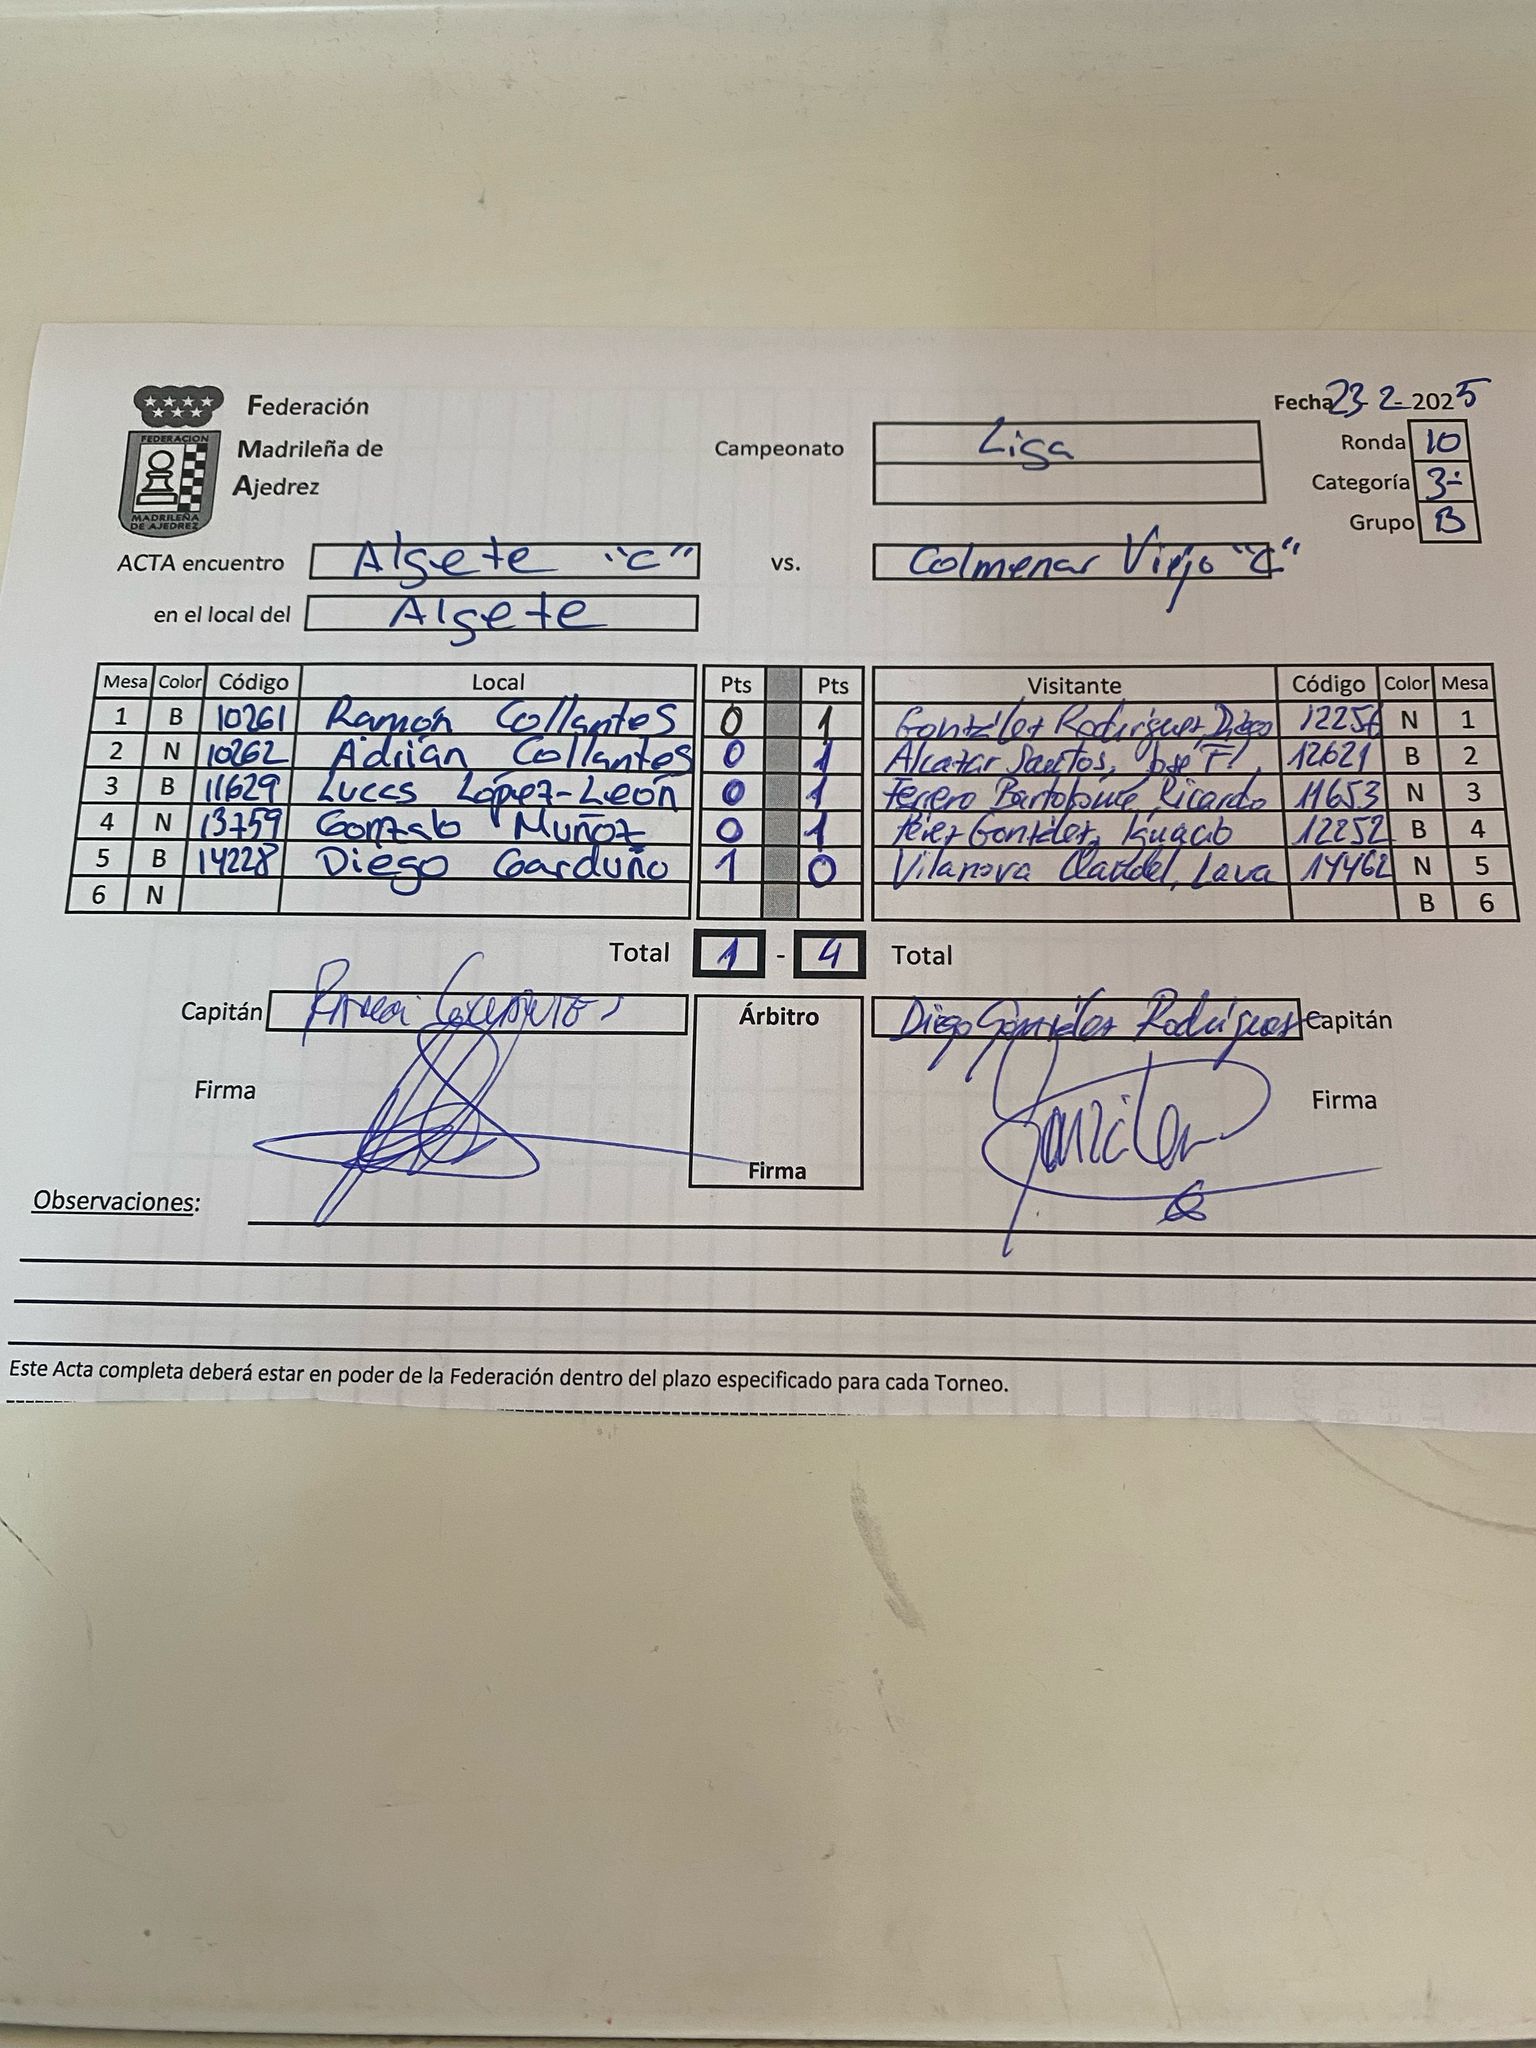 Federación
Madrileña de
Ajedrez
FEDERACION
MADRILEÑA
DE AJEDREZ
Campeonato Liga
Fecha 23-2-2025
Ronda 10
Categoría 3ª
Grupo B
ACTA encuentro Algete "C" vs. Colmenar Viejo "C"
en el local del Algete
Mesa Color Código Local Pts Pts Visitante Código Color Mesa
1 B 10261 Ramón Collantes 0 1 González Rodríguez, Diego 12256 N 1
2 N 10262 Adrián Collantes 0 1 Alcazar Santos, José F. 12621 B 2
3 B 11629 Lucas López-León 0 1 Ferrero Bartolomé, Ricardo 11653 N 3
4 N 13759 Gonzalo Muñoz 0 1 Pérez González, Ignacio 12252 B 4
5 B 14228 Diego Garduño 1 0 Vilanova 14462 N 5
6 N B 6
Total 1 - 4 Total
Capitán Árbitro Diego González Rodríguez Capitán
Firma Firma Firma
Observaciones:
Este Acta completa deberá estar en poder de la Federación dentro del plazo especificado para cada Torneo.